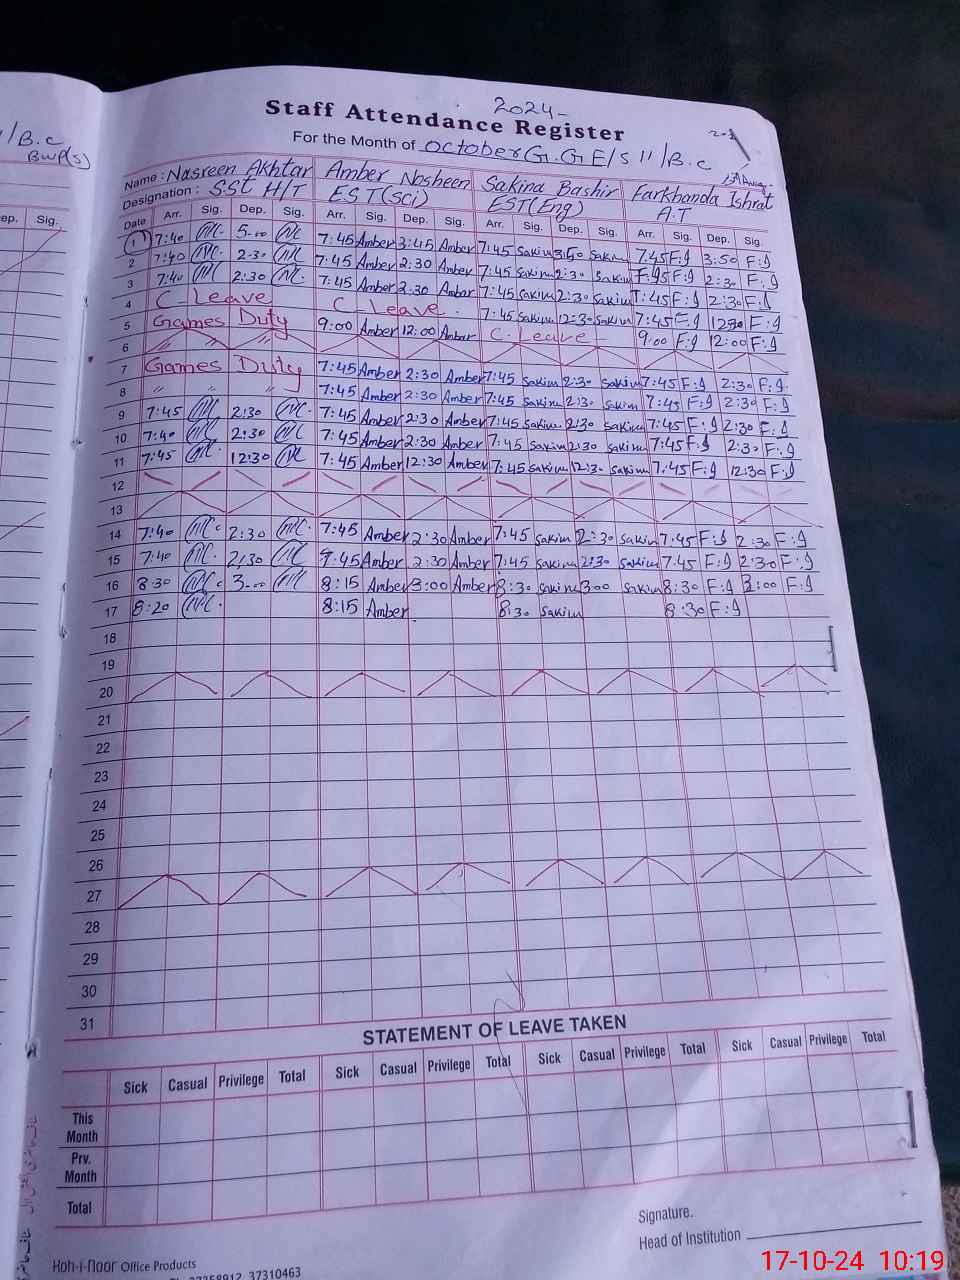 2024-
Staff Attendance Register
For the Month of October G.G E/S 11/B.C
/B.C
BWP(S)
Name : Nasreen Akhtar Amber Nosheen Sakina Bashir Farkhanda Ishrat
Designation : SST H/T EST(Sci) EST(Eng) A.T
ep. Sig.
Date Arr. Sig. Dep. Sig. Arr. Sig. Dep. Sig. Arr. Sig. Dep. Sig. Arr. Sig. Dep. Sig.
1 7:40 5-00 7:45 Amber 3:45 Amber 7:45 Sakina 3:50 Sakina 7:45 F.I 3:50 F.I
2 7:40 2-30 7:45 Amber 2:30 Amber 7:45 Sakina 2:30 Sakina 7:45 F.I 2:30 F.I
3 7:40 2:30 7:45 Amber 2:30 Amber 7:45 Sakina 2:30 Sakina 7:45 F.I 2:30 F.I
4 C-Leave C-Leave. 7:45 Sakina 12:30 Sakina 7:45 F.I 1230 F.I
5 Games Duty 9:00 Amber 12:00 Amber C-Leave- 9:00 F.I 12:00 F.I
6 〃 〃
7 Games Duty 7:45 Amber 2:30 Amber 7:45 Sakina 2:30 Sakina 7:45 F.I 2:30 F.I
8 〃 〃 7:45 Amber 2:30 Amber 7:45 Sakina 2:30 Sakina 7:45 F.I 2:30 F.I
9 7:45 2:30 7:45 Amber 2:30 Amber 7:45 Sakina 2:30 Sakina 7:45 F.I 2:30 F.I
10 7:40 2:30 7:45 Amber 2:30 Amber 7:45 Sakina 2:30 Sakina 7:45 F.I 2:30 F.I
11 7:45 12:30 7:45 Amber 12:30 Amber 7:45 Sakina 12:30 Sakina 7:45 F.I 12:30 F.I
12
13
14 7:40 2:30 7:45 Amber 2:30 Amber 7:45 Sakina 2:30 Sakina 7:45 F.I 2:30 F.I
15 7:40 2:30 7:45 Amber 2:30 Amber 7:45 Sakina 2:30 Sakina 7:45 F.I 2:30 F.I
16 8:30 3-00 8:15 Amber 3:00 Amber 8:30 Sakina 300 Sakina 8:30 F.I 3:00 F.I
17 8:20 8:15 Amber 8:30 Sakina 8:30 F.I
18
19
20
21
22
23
24
25
26
27
28
29
30
31
STATEMENT OF LEAVE TAKEN
Sick Casual Privilege Total Sick Casual Privilege Total Sick Casual Privilege Total Sick Casual Privilege Total
This
Month
Prv.
Month
Total
Signature.
Head of Institution
Koh-i-noor Office Products
37358912, 37310463
17-10-24 10:19